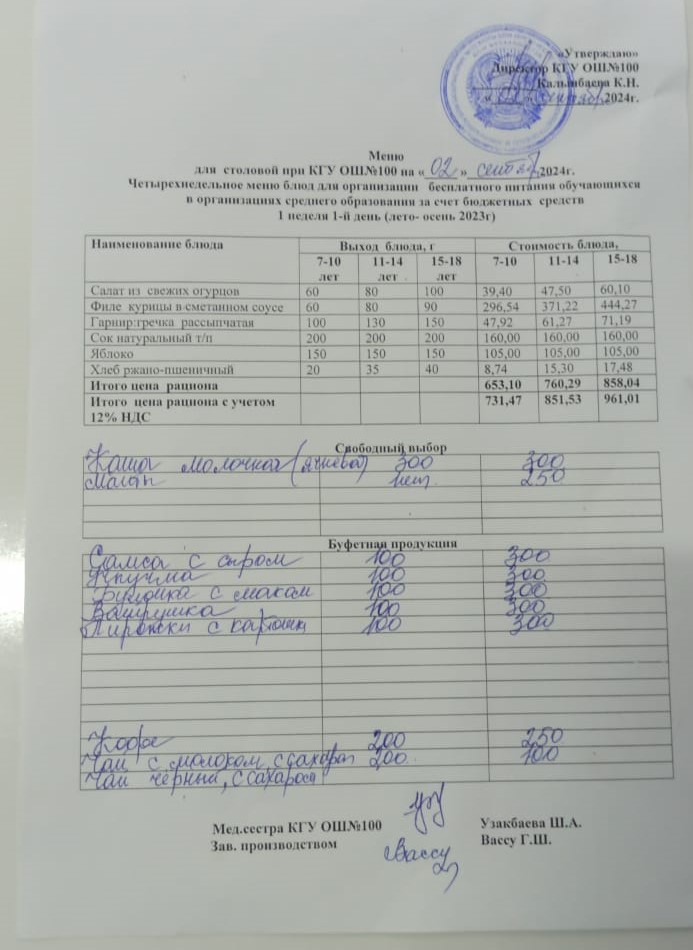 «Утверждаю»
Директор КГУ ОШ№100
Калынбаева К.Н.
«02» сентябр 2024г.
Меню
для столовой при КГУ ОШ№100 на «02» сентябр 2024г.
Четырехнедельное меню блюд для организации бесплатного питания обучающихся
в организациях среднего образования за счет бюджетных средств
1 неделя 1-й день (лето- осень 2023г)
Наименование блюда Выход блюда, г Стоимость блюда,
7-10 лет 11-14 лет 15-18 лет 7-10 11-14 15-18
Салат из свежих огурцов 60 80 100 39,40 47,50 60,10
Филе курицы в сметанном соусе 60 80 90 296,54 371,22 444,27
Гарнир:гречка рассыпчатая 100 130 150 47,92 61,27 71,19
Сок натуральный т/п 200 200 200 160,00 160,00 160,00
Яблоко 150 150 150 105,00 105,00 105,00
Хлеб ржано-пшеничный 20 35 40 8,74 15,30 17,48
Итого цена рациона 653,10 760,29 858,04
Итого цена рациона с учетом 731,47 851,53 961,01
12% НДС
Свободный выбор
Каша молочная (ячнева) 300 300
250
Буфетная продукция
Самса с сыром 100 300
100 300
с маком 100 300
Ватрушка 100 300
Пирожки с картошк 100 300
Кофе 200 250
Чай с молоком, с сахаром 200 100
Чай черный, с сахаром
Мед.сестра КГУ ОШ№100 Узакбаева Ш.А.
Зав. производством Вассу Вассу Г.Ш.